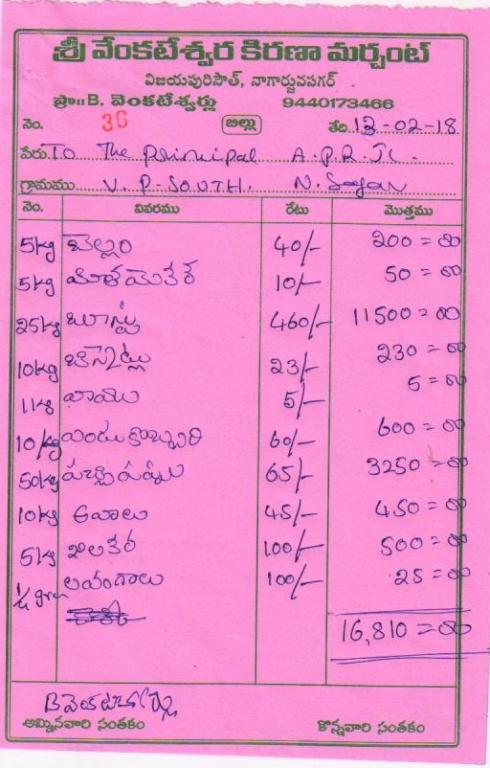 శ్రీ వేంకటేశ్వర కిరణా మర్చంట్
విజయపురిసౌత్, నాగార్జునసాగర్
ప్రొ॥B. వెంకటేశ్వర్లు 9440173466
నెం. 36 బిల్లు తేది 13-02-18
పేరు To The Principal A.P.R.Jc.
గ్రామము V. P-SOUTH. N. Sagar
నెం. వివరము రేటు మొత్తము
5kg బెల్లం 40/- 200=00
5kg 10/- 50=00
25kg బూస్టు 460/- 11500=00
10kg బిస్కెట్లు 23/- 230=00
1kg 5/- 5=00
10kg ఎండుకొబ్బరి 60/- 600=00
50kg 65/- 3250=00
10kg ఆవాలు 45/- 450=00
5kg జీలకర్ర 100/- 500=00
1/4 gm లవంగాలు 100/- 25=00
16,810=00
Bవెంకటేశ్వర్లు
అమ్మినవారి సంతకం కొన్నవారి సంతకం